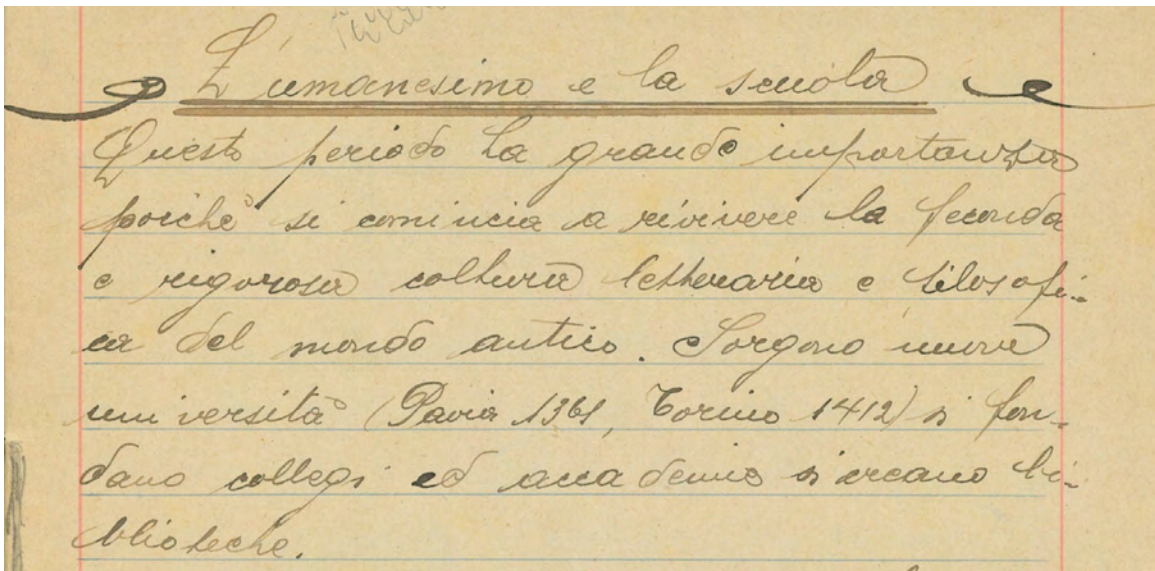 L'umanesimo e la scuola
Questo periodo ha grande importanza
poichè si comincia a rivivere la feconda
e rigorosa coltura letteraria e filosofi-
ca del mondo antico. Sorgono nuove
università (Pavia 1361, Torino 1412) si fon-
dano collegi ed accademie si creano bi-
blioteche.